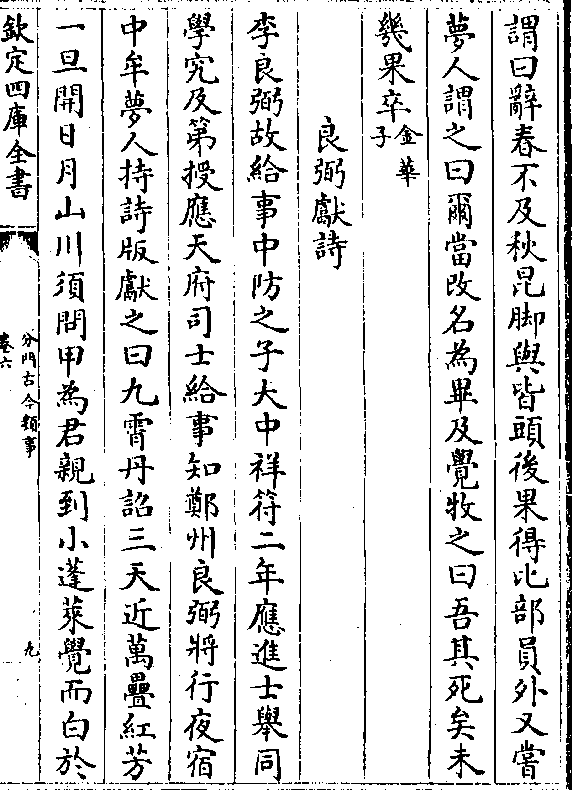 謂曰辭春不及秋昆脚與皆頭後果得比部員外又嘗
夢人謂之曰爾當改名為畢及覺牧之曰吾其死矣未
幾果卒金華子
良弼獻詩
李良弼故給事中防之子大中祥符二年應進士舉同
學究及第授應天府司士給事知鄭州良弼將行夜宿
中牟夢人持詩版獻之曰九霄丹詔三天近萬疊紅芳
一旦開日月山川須問甲為君親到小蓬萊覺而白於
欽定四庫全書
分門古今類事
卷六
九